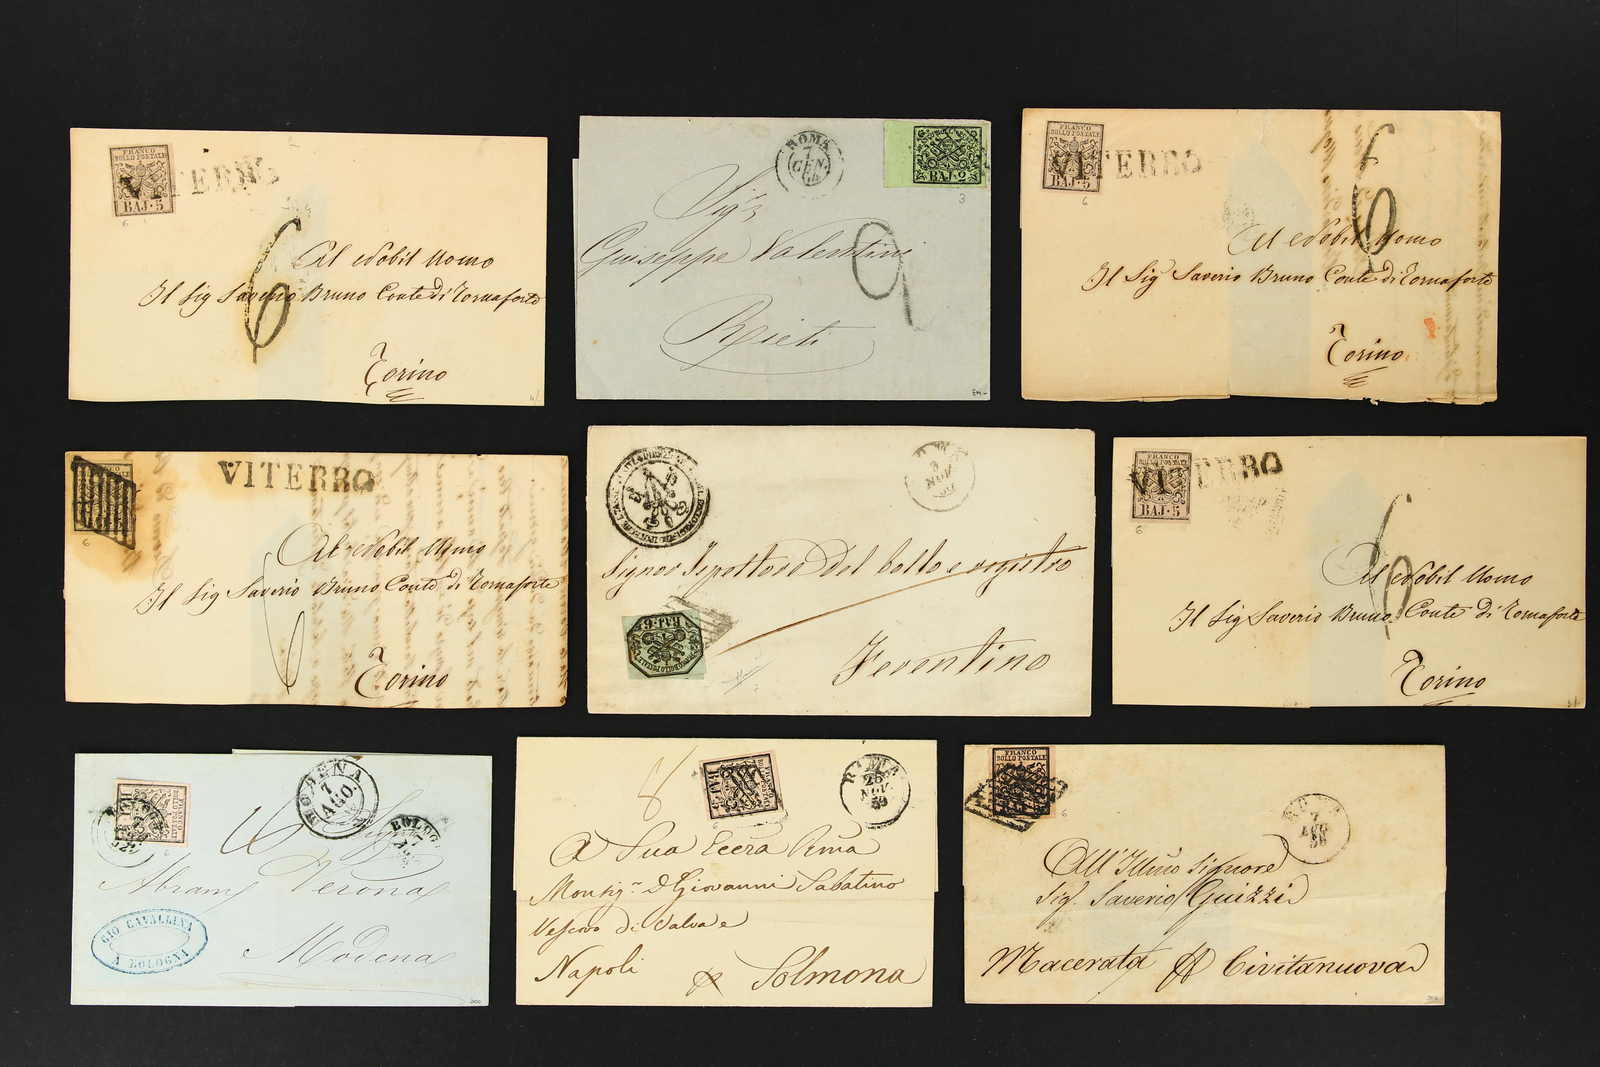 FRANCO
BOLLO POSTALE
BAJ·5
VITERBO
6
6
Al Nobil Uomo
Il Sig Saverio Bruno Conte di Tornaforte
Torino
ROMA
7
GEN.
64
BAJ·2
3
Sig.r
Giuseppe Valentini
Rieti
FRANCO
BOLLO POSTALE
BAJ·5
VITERBO
6
6
Al Nobil Uomo
Il Sig Saverio Bruno Conte di Tornaforte
Torino
VITERBO
6
Al Nobil Uomo
Il Sig Saverio Bruno Conte di Tornaforte
Torino
NOV
Signor Ispettore del bollo e registro
BAJ·6
Ferentino
FRANCO
BOLLO POSTALE
BAJ·5
VITERBO
6
Al Nobil Uomo
Il Sig Saverio Bruno Conte di Tornaforte
Torino
MODENA
7
AGO.
BOLOGNA
Abram Verona
GIO CAVALLINA
A BOLOGNA
Modena
8
ROMA
25
NOV.
59
A Sua Eccza Rma
Monsig.r D Giovanni Sabatino
Vescovo di
Napoli
Solmona
FRANCO
BOLLO POSTALE
ROMA
7
LUG
58
All'Illmo Signore
Sig. Saverio Guizzi
Macerata
Civitanuova